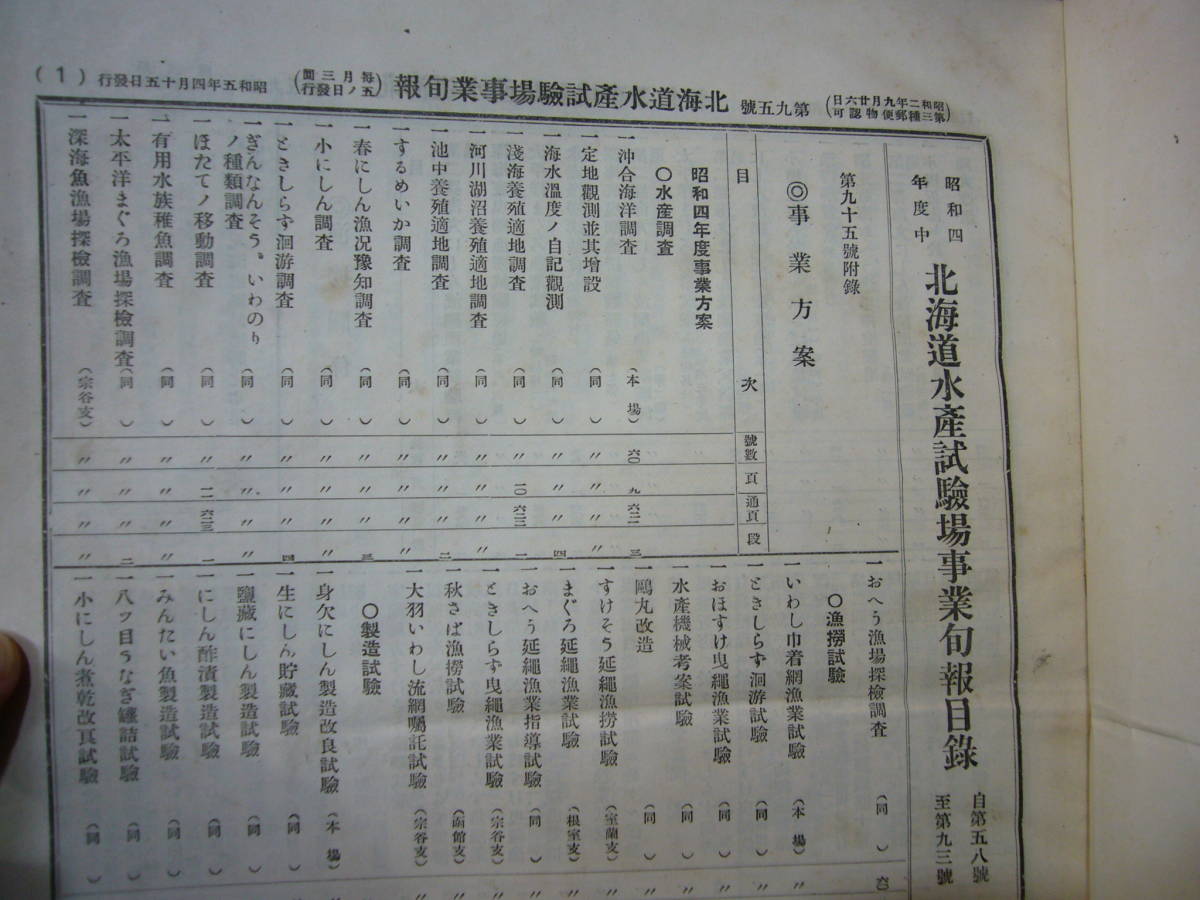 昭和二年九月廿六日第三種郵便物認可
第九五號
北海道水產試驗場事業旬報
每月三回五ノ日發行
昭和五年四月十五日發行
(1)
昭和四年度中
北海道水產試驗場事業旬報目錄
自第五八號
至第九三號
第九十五號附錄
◎事業方案
目次
號數
頁
通頁
段
昭和四年度事業方案
○水産調査
一沖合海洋調査 (本場) 六〇 九 六二一 三
一定地觀測並其增設 (同) 〃 〃 〃 〃
一海水溫度ノ自記觀測 (同) 〃 〃 〃 四
一淺海養殖適地調査 (同) 〃 一〇 六二二 一
一河川湖沼養殖適地調査 (同) 〃 〃 〃 〃
一池中養殖適地調査 (同) 〃 〃 〃 二
一するめいか調査 (同) 〃 〃 〃 〃
一春にしん漁況豫知調査 (同) 〃 〃 〃 三
一小にしん調査 (同) 〃 〃 〃 〃
一ときしらず洄游調査 (同) 〃 〃 〃 四
一ぎんなんそう、いわのりノ種類調査 (同) 〃 〃 〃 〃
一ほたてノ移動調査 (同) 〃 一一 六二三 一
一有用水族稚魚調査 (同) 〃 〃 〃 〃
一太平洋まぐろ漁場探檢調査 (同) 〃 〃 〃 二
一深海魚漁場探檢調査 (宗谷支) 〃 〃 〃 〃
一おへう漁場探檢調査 (同)
○漁撈試驗
一いわし巾着網漁業試驗 (本場) 〃
一ときしらず洄游試驗 (同) 〃
一おほすけ曳繩漁業試驗 (同) 〃
一水產機械考案試驗 (同) 〃
一鷗丸改造 (同) 〃
一すけそう延繩漁撈試驗 (室蘭支) 〃
一まぐろ延繩漁業試驗 (根室支) 〃
一おへう延繩漁業指導試驗 (同) 〃
一ときしらず曳繩漁業試驗 (宗谷支) 〃
一秋さば漁撈試驗 (函館支) 〃
一大羽いわし流網囑託試驗 (宗谷支) 〃
○製造試驗
一身欠にしん製造改良試驗 (本場) 〃
一生にしん貯藏試驗 (同)
一鹽藏にしん製造試驗 (同)
一にしん酢漬製造試驗 (同)
一みんたい魚製造試驗 (同)
一八ツ目うなぎ罐詰試驗 (同)
一小にしん煮乾改良試驗 (同)